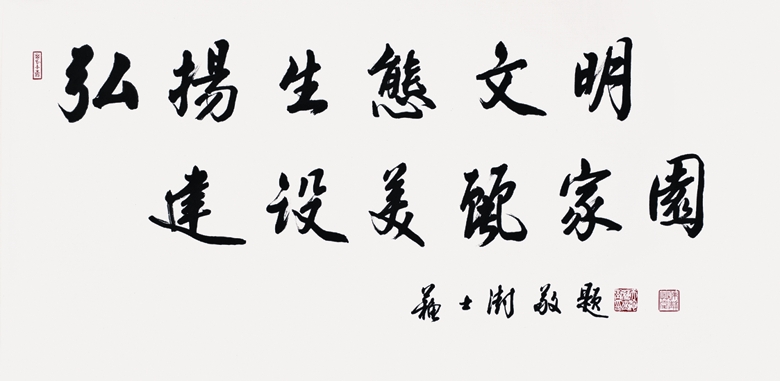 弘揚生態文明
建设美麗家園
苏士澍敬题